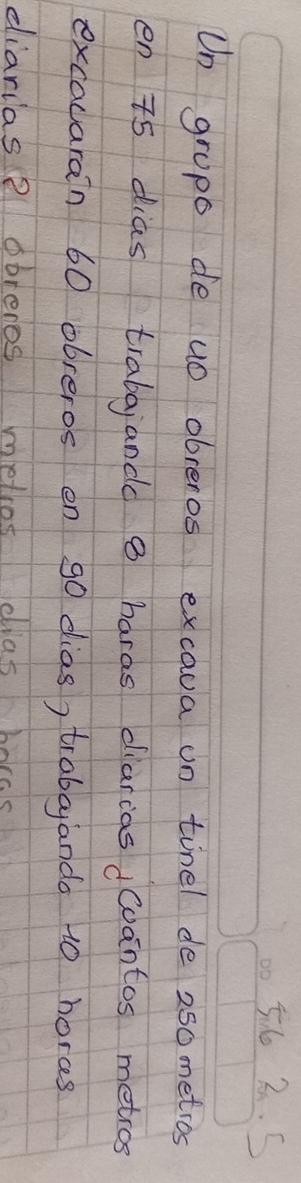 Un grupo de 40 obreros excava un túnel de 250 metros
en 75 dias trabajando 8 horas diarias ¿Cuántos metros
excavarán 60 obreros en 90 dias, trabajando 10 horas
diarias?
obreros metros dias horas